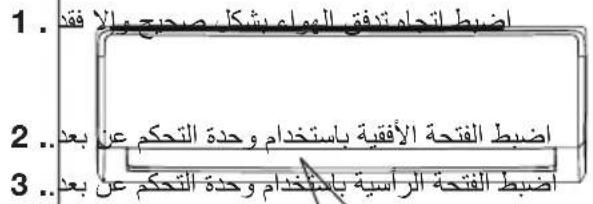 1 . اضبط اتجاه تدفق الهواء بشكل صحيح وإلا فقد
2 .. اضبط الفتحة الأفقية باستخدام وحدة التحكم عن بعد
3 .. اضبط الفتحة الرأسية باستخدام وحدة التحكم عن بعد